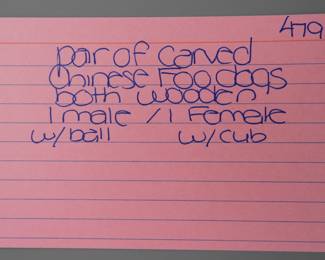 479
pair of carved
Chinese Foo dogs
both wooden
1 male / 1 Female
w/ball w/cub